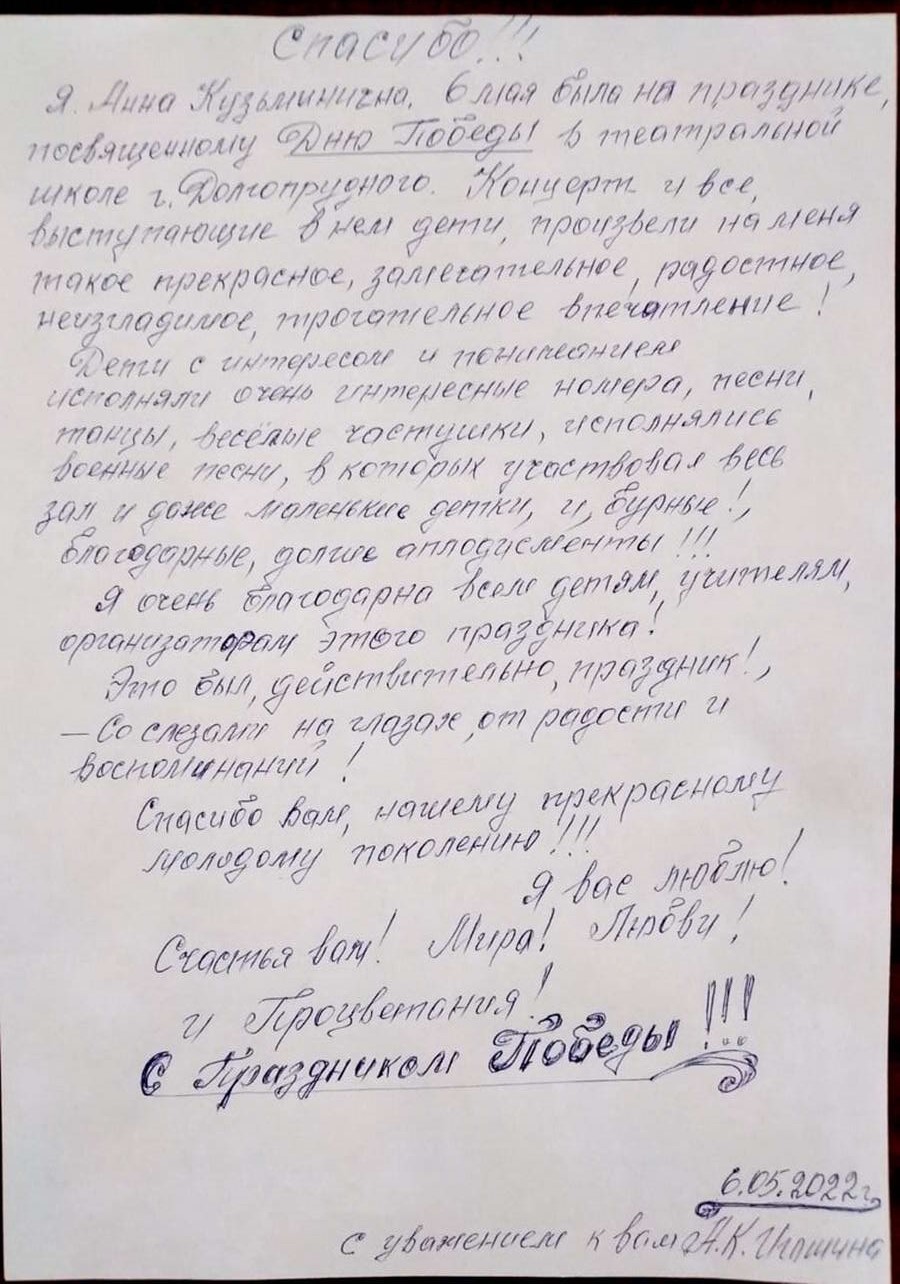 Спасибо!!!
Я. Анна Кузьминична. 6 мая была на празднике,
посвященному Дню Победы в театральной
школе г. Долгопрудного. Концерт и все,
выступающие в нем дети, произвели на меня
такое прекрасное, замечательное, радостное,
неизгладимое, трогательное впечатление!
Дети с интересом и пониманием
исполняли очень интересные номера, песни,
танцы, весёлые частушки, исполнялись
военные песни, в которых участвовал весь
зал и даже маленькие детки, и, бурные!,
благодарные, долгие аплодисменты!!!
Я очень благодарна всем детям, учителям,
организаторам этого праздника!
Это был, действительно, праздник!,
— Со слезами на глазах, от радости и
воспоминаний!
Спасибо вам, нашему прекрасному
молодому поколению!!!
Я вас люблю!
Счастья вам! Мира! Любви!
и Процветания!
С Праздником Победы!!!
6.05.2022г.
с уважением к вам А.К.